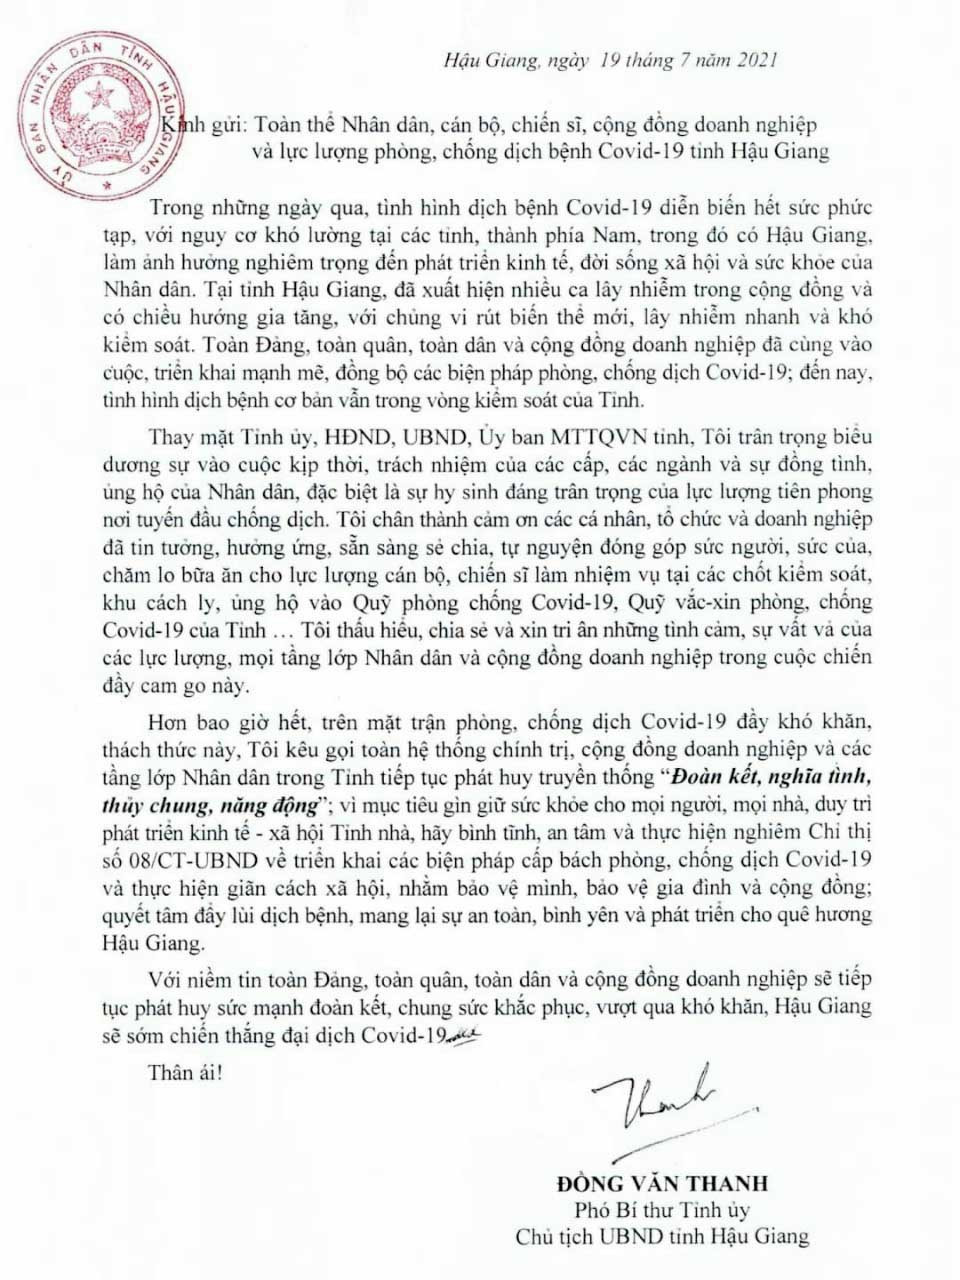 ỦY BAN NHÂN DÂN TỈNH HẬU GIANG
Hậu Giang, ngày 19 tháng 7 năm 2021
Kính gửi: Toàn thể Nhân dân, cán bộ, chiến sĩ, cộng đồng doanh nghiệp
và lực lượng phòng, chống dịch bệnh Covid-19 tỉnh Hậu Giang
Trong những ngày qua, tình hình dịch bệnh Covid-19 diễn biến hết sức phức
tạp, với nguy cơ khó lường tại các tỉnh, thành phía Nam, trong đó có Hậu Giang,
làm ảnh hưởng nghiêm trọng đến phát triển kinh tế, đời sống xã hội và sức khỏe của
Nhân dân. Tại tỉnh Hậu Giang, đã xuất hiện nhiều ca lây nhiễm trong cộng đồng và
có chiều hướng gia tăng, với chủng vi rút biến thể mới, lây nhiễm nhanh và khó
kiểm soát. Toàn Đảng, toàn quân, toàn dân và cộng đồng doanh nghiệp đã cùng vào
cuộc, triển khai mạnh mẽ, đồng bộ các biện pháp phòng, chống dịch Covid-19; đến nay,
tình hình dịch bệnh cơ bản vẫn trong vòng kiểm soát của Tỉnh.
Thay mặt Tỉnh ủy, HĐND, UBND, Ủy ban MTTQVN tỉnh, Tôi trân trọng biểu
dương sự vào cuộc kịp thời, trách nhiệm của các cấp, các ngành và sự đồng tình,
ủng hộ của Nhân dân, đặc biệt là sự hy sinh đáng trân trọng của lực lượng tiên phong
nơi tuyến đầu chống dịch. Tôi chân thành cảm ơn các cá nhân, tổ chức và doanh nghiệp
đã tin tưởng, hưởng ứng, sẵn sàng sẻ chia, tự nguyện đóng góp sức người, sức của,
chăm lo bữa ăn cho lực lượng cán bộ, chiến sĩ làm nhiệm vụ tại các chốt kiểm soát,
khu cách ly, ủng hộ vào Quỹ phòng chống Covid-19, Quỹ vắc-xin phòng, chống
Covid-19 của Tỉnh … Tôi thấu hiểu, chia sẻ và xin tri ân những tình cảm, sự vất vả của
các lực lượng, mọi tầng lớp Nhân dân và cộng đồng doanh nghiệp trong cuộc chiến
đầy cam go này.
Hơn bao giờ hết, trên mặt trận phòng, chống dịch Covid-19 đầy khó khăn,
thách thức này, Tôi kêu gọi toàn hệ thống chính trị, cộng đồng doanh nghiệp và các
tầng lớp Nhân dân trong Tỉnh tiếp tục phát huy truyền thống “Đoàn kết, nghĩa tình,
thủy chung, năng động”; vì mục tiêu gìn giữ sức khỏe cho mọi người, mọi nhà, duy trì
phát triển kinh tế - xã hội Tỉnh nhà, hãy bình tĩnh, an tâm và thực hiện nghiêm Chỉ thị
số 08/CT-UBND về triển khai các biện pháp cấp bách phòng, chống dịch Covid-19
và thực hiện giãn cách xã hội, nhằm bảo vệ mình, bảo vệ gia đình và cộng đồng;
quyết tâm đẩy lùi dịch bệnh, mang lại sự an toàn, bình yên và phát triển cho quê hương
Hậu Giang.
Với niềm tin toàn Đảng, toàn quân, toàn dân và cộng đồng doanh nghiệp sẽ tiếp
tục phát huy sức mạnh đoàn kết, chung sức khắc phục, vượt qua khó khăn, Hậu Giang
sẽ sớm chiến thắng đại dịch Covid-19
Thân ái!
Thanh
ĐỒNG VĂN THANH
Phó Bí thư Tỉnh ủy
Chủ tịch UBND tỉnh Hậu Giang